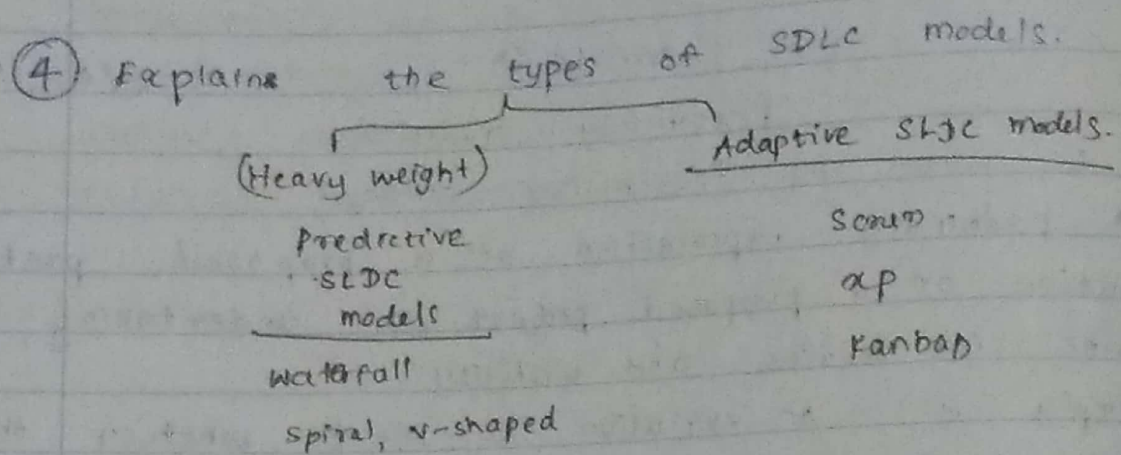 ④ Explains the types of SDLC models.
(Heavy weight)
Predictive
SLDC
models
waterfall
spiral, v-shaped
Adaptive SLDC models.
Scrum
xp
Kanban